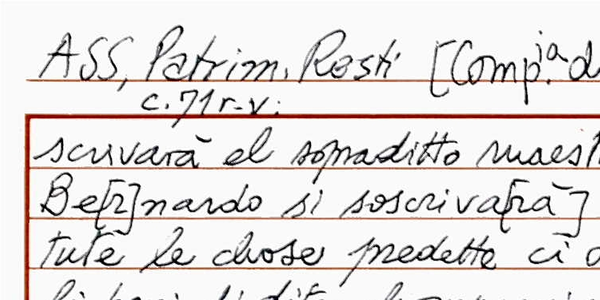 ASS, Patrim. Resti [Comp.ia d
c. 71 r-v:
scrivarà el sopraditto maest
Be[r]nardo si soscriva[rà]
tutè le chose predette ci